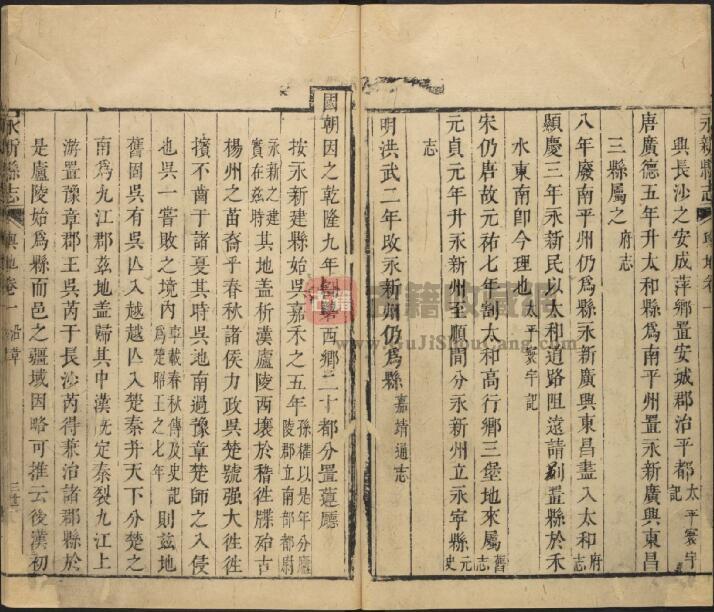 永新縣志 輿地卷一
興長沙之安成萍鄉置安城郡治平都太平寰宇記
唐廣德五年升太和縣爲南平州置永新廣興東昌
三縣屬之府志
八年廢南平州仍爲縣永新廣興東昌盡入太和府志
顯慶三年永新民以太和道路阻遠請别置縣於禾
水東南卽今理也太平寰宇記
宋仍唐故元祐七年割太和高行鄉三堡地來屬舊志
元貞元年升永新州至順間分永新州立永寧縣元史
志
明洪武二年改永新州仍爲縣嘉靖通志
國朝因之乾隆九年割第西鄉二十都分置蓮廳
按永新建縣始吳嘉禾之五年孫權以是年分廬陵郡立南部都尉
永新之建實在茲特其地盖析漢廬陵西壤於稽徃牒殆古
楊州之苗裔乎春秋諸侯力政吳楚號强大徃徃
擯不齒于諸夏其時吳池南過豫章楚師之入侵
也吳一嘗敗之境內事載春秋傳及史記爲楚昭王之七年則茲地
舊固吳有吳亾入越越亾入楚秦并天下分楚之
南爲九江郡茲地盡歸其中漢旣定秦裂九江上
游置豫章郡王吳芮于長沙芮得兼治諸郡縣於
是廬陵始爲縣而邑之疆域因略可推云後漢初
永新縣志 輿地卷一 沿革
古籍收藏网
www.GuJiShouCang.com